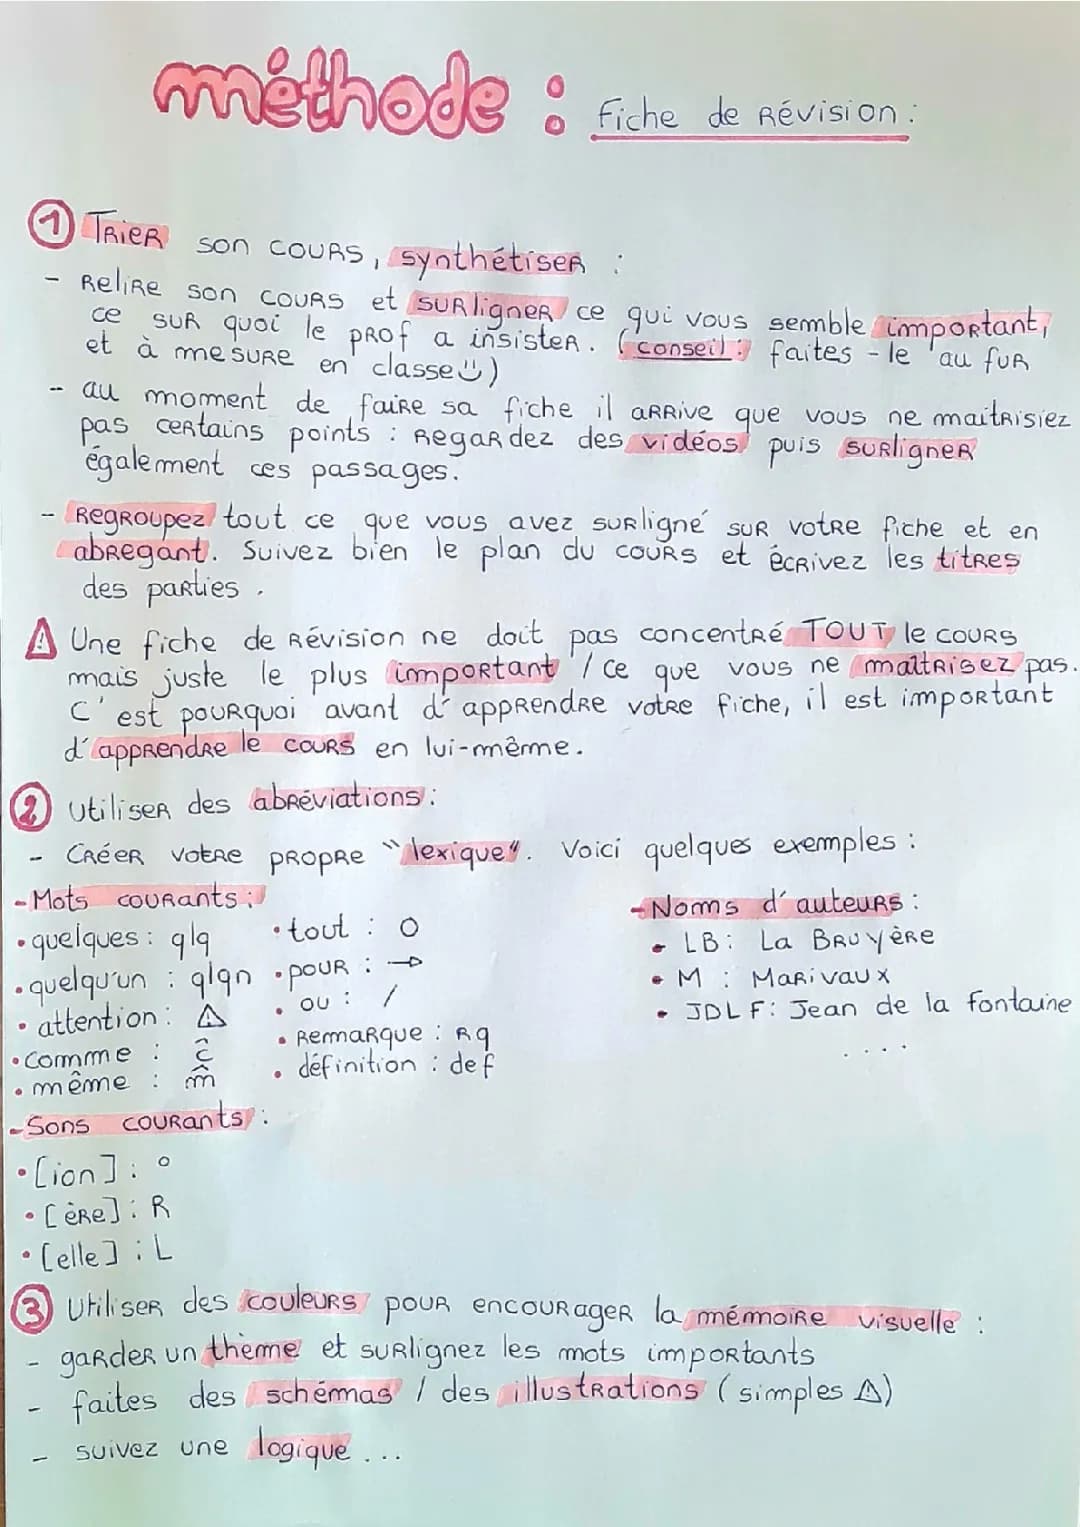 méthode : Fiche de Révision :
① Trier son cours, synthétiser :
- Relire son cours et surligner ce qui vous semble important,
ce sur quoi le prof a insister. (conseil : faites - le au fur
et à mesure en classe ü)
- au moment de faire sa fiche il arrive que vous ne maitrisiez
pas certains points : Regardez des vidéos puis surligner
également ces passages.
- Regroupez tout ce que vous avez surligné sur votre fiche et en
abregant. Suivez bien le plan du cours et écrivez les titres
des parties.
⚠ Une fiche de Révision ne doit pas concentré TOUT le cours
mais juste le plus important / ce que vous ne maîtrisez pas.
C'est pourquoi avant d'apprendre votre fiche, il est important
d'apprendre le cours en lui-même.
② Utiliser des abréviations :
- Créer votre propre "lexique". Voici quelques exemples :
- Mots courants :
• quelques : qlq
• quelqu'un : qlqn
• attention : ⚠
• comme : ĉ
• même : m̂
• tout : O
• pour : →
• ou : /
• Remarque : Rq
• définition : def
- Noms d'auteurs :
• LB : La Bruyère
• M : Marivaux
• JDLF : Jean de la fontaine
....
- Sons courants :
• [ion] : °
• [ère] : R
• [elle] : L
③ Utiliser des couleurs pour encourager la mémoire visuelle :
- garder un thème et surlignez les mots importants
- faites des schémas / des illustrations (simples ⚠)
- suivez une logique ...